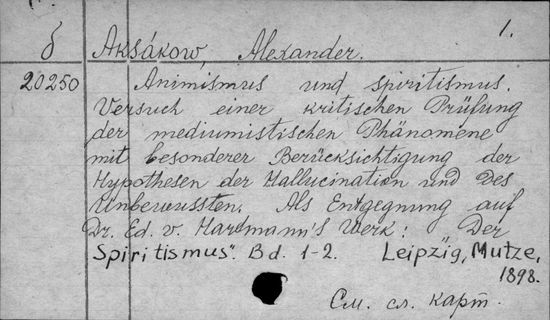 1.
δ Aksákow, Alexander.
20250 Animismus und spiritismus.
Versuch einer kritischen Prüfung
der mediumistischen Phänomene
mit besonderer Berücksichtigung der
Hypothesen der Hallucination und des
Unbewussten. Als Entgegnung auf
Dr. Ed. v. Hartmann's Werk: „Der
Spiritismus". Bd. 1-2. Leipzig, Mutze,
1898.
См. сл. карт.